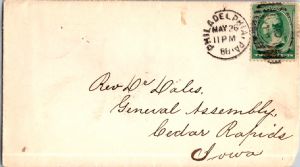 PHILADELPHIA, PA.
MAY 26
11 PM
86
Rev Dr Dales,
General Assembly,
Cedar Rapids
Iowa